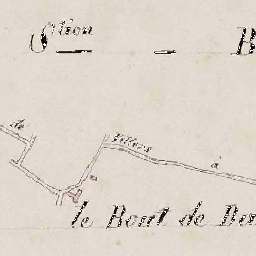 S^tion — - B
de
Villers
à
le Bout de